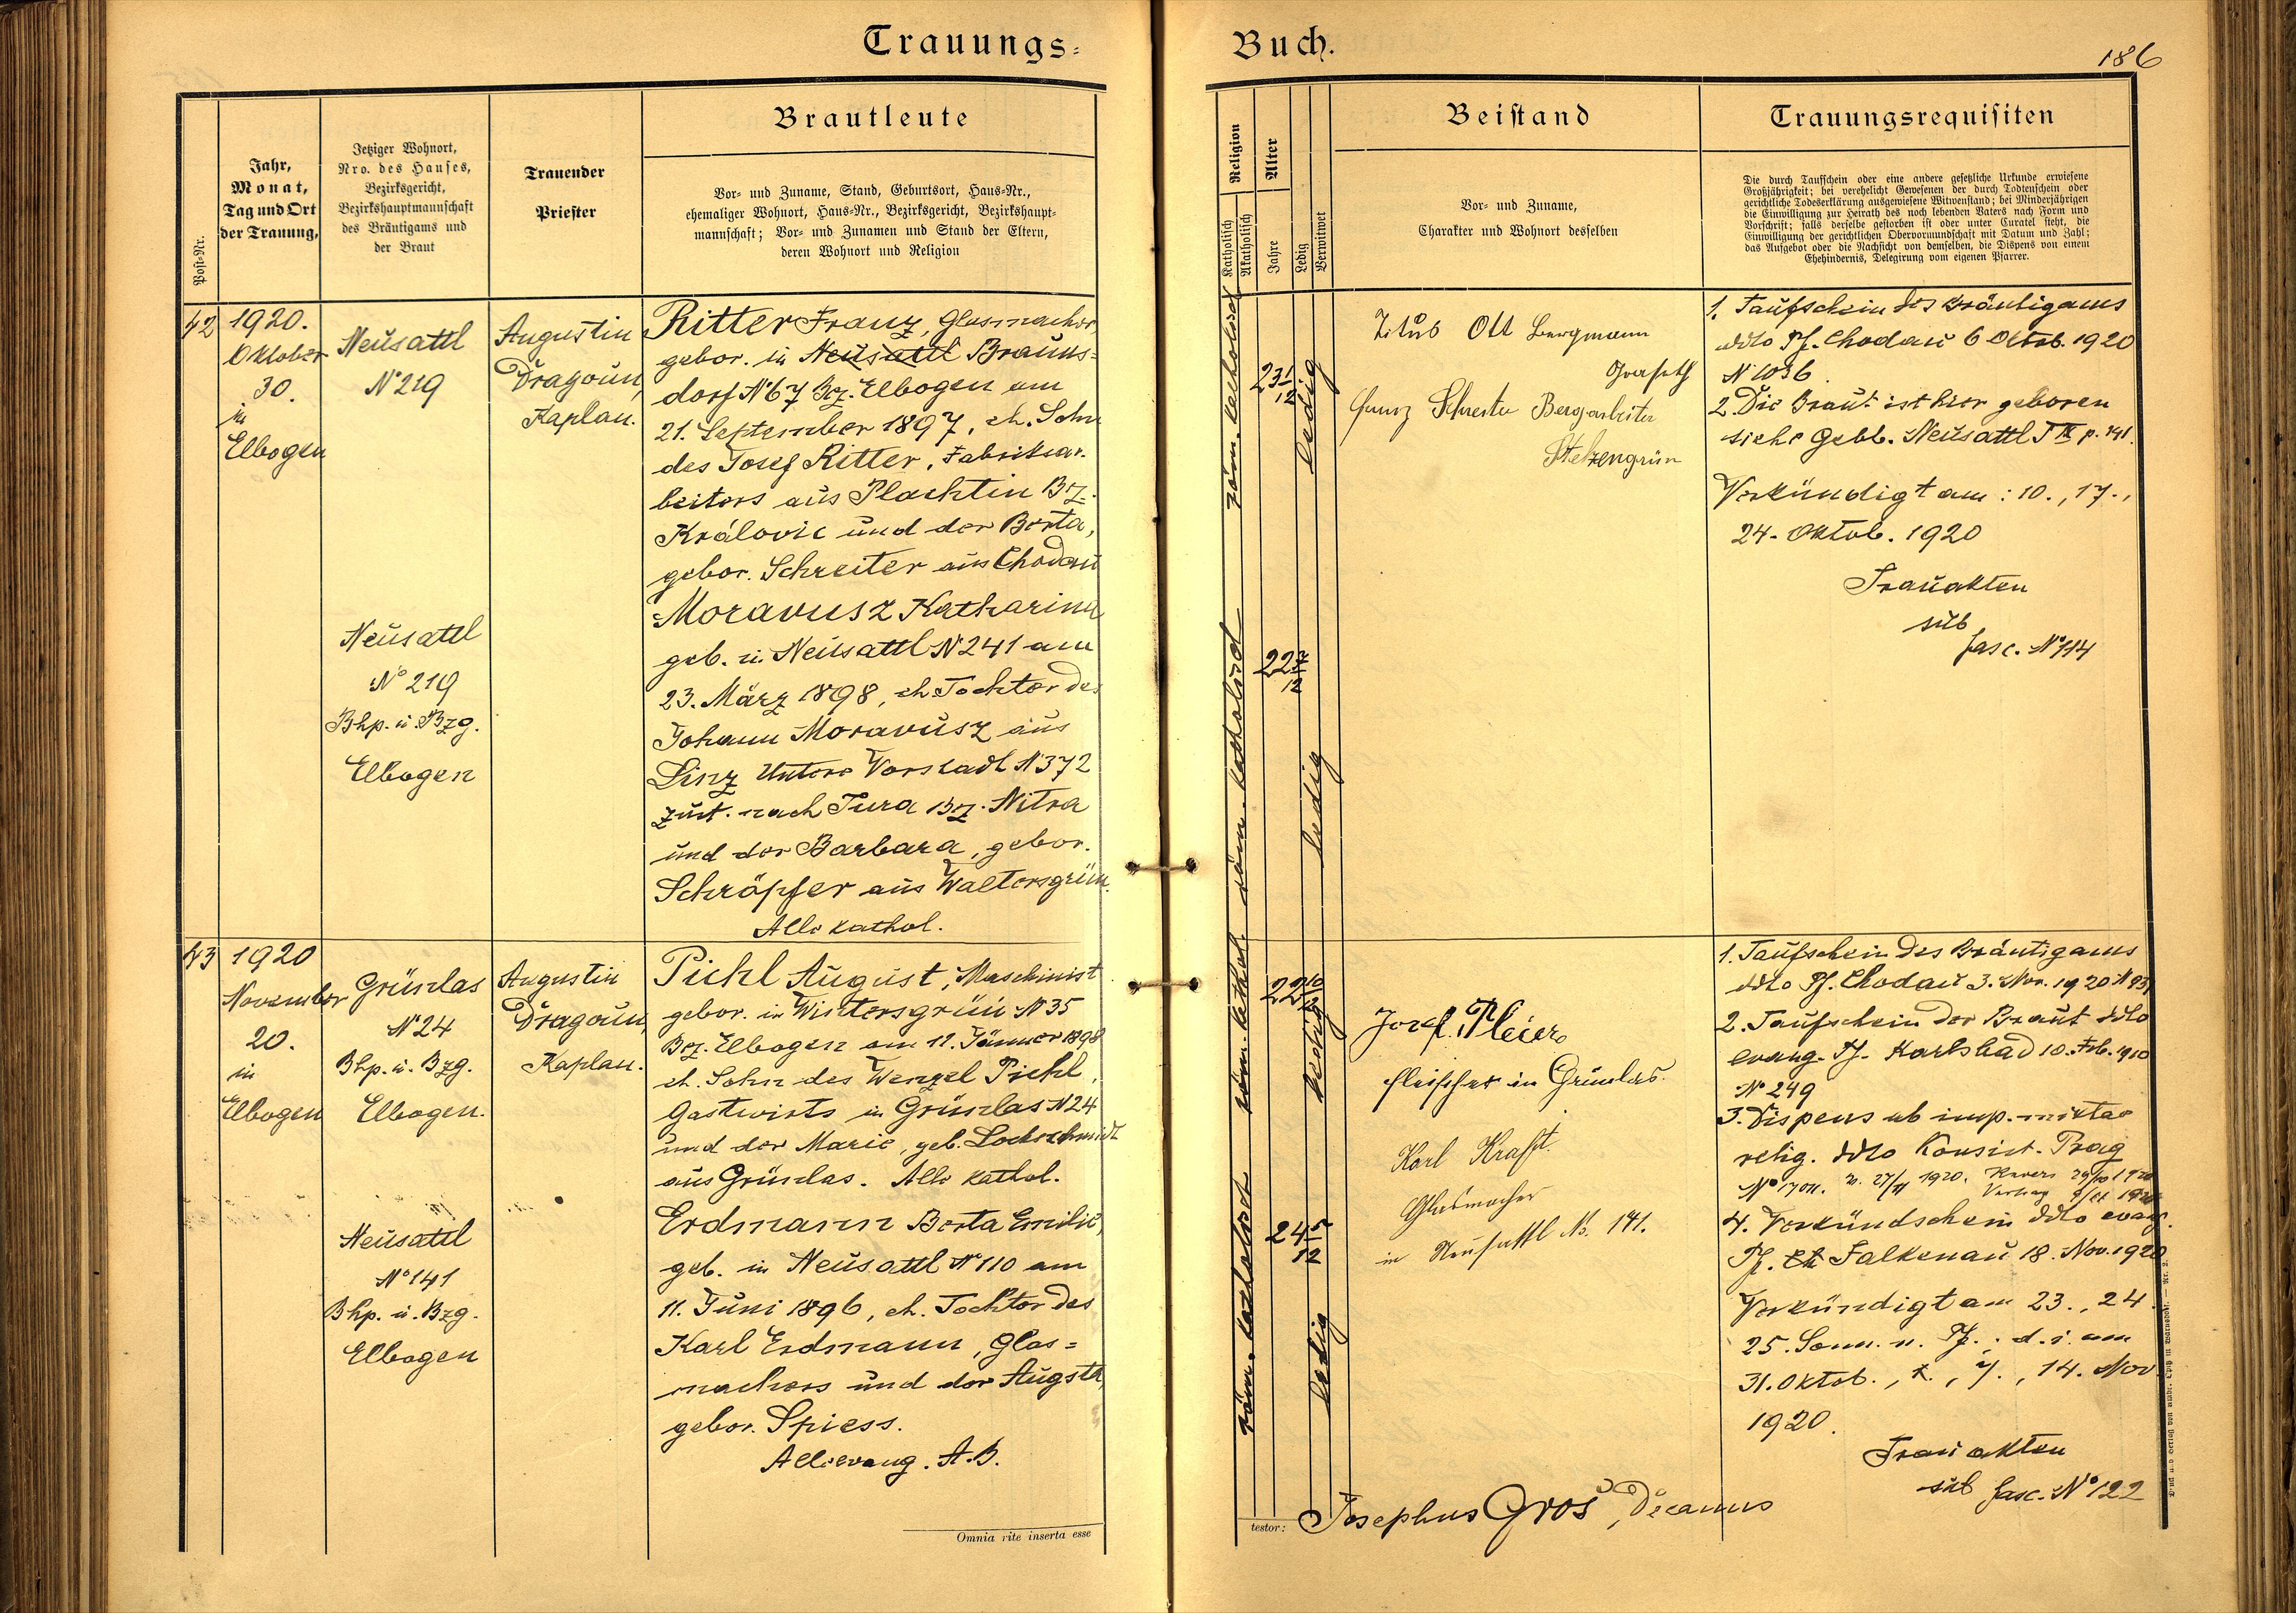 Trauungs-
Buch.
186
Post-Nr.
Jahr,
Monat,
Tag und Ort
der Trauung,
Jetziger Wohnort,
Nro. des Hauses,
Bezirksgericht,
Bezirkshauptmannschaft
des Bräutigams und
der Braut
Trauender
Priester
Brautleute
Vor- und Zuname, Stand, Geburtsort, Haus-Nr.,
ehemaliger Wohnort, Haus-Nr., Bezirksgericht, Bezirkshaupt-
mannschaft; Vor- und Zunamen und Stand der Eltern,
deren Wohnort und Religion
Religion
Katholisch
Akatholisch
Alter
Jahre
Ledig
Verwitwet
Beistand
Vor- und Zuname,
Charakter und Wohnort desselben
Trauungsrequisiten
Die durch Taufschein oder eine andere gesetzliche Urkunde erwiesene
Großjährigkeit; bei verehelicht Gewesenen der durch Todtenschein oder
gerichtliche Todeserklärung ausgewiesene Witwenstand; bei Minderjährigen
die Einwilligung zur Heirath des noch lebenden Vaters nach Form und
Vorschrift; falls derselbe gestorben ist oder unter Curatel steht, die
Einwilligung der gerichtlichen Obervormundschaft mit Datum und Zahl;
das Aufgebot oder die Nachsicht von demselben, die Dispens von einem
Ehehindernis, Delegirung vom eigenen Pfarrer.
42
1920.
Oktober
30.
in
Elbogen
Neusattl
N° 219
Augustin
Dragoun,
Kaplan.
Ritter Franz, Glasmacher,
gebor. in Neusattl Brauns-
dorf N° 67 Bez. Elbogen am
21. September 1897, eh. Sohn
des Josef Ritter, Fabriksar-
beiters aus Plachtin Bz.
Královic und der Berta,
gebor. Schreiter aus Chodau
Neusattl
N° 219
Bhp. u. Bzg.
Elbogen
Moravusz Katharina
geb. in Neusattl N° 241 am
23. März 1898, eh. Tochter des
Johann Moravusz aus
Linz Untere Vorstadt N° 372
zust. nach Tura Bz. Nitra
und der Barbara, gebor.
Schröpfer aus Waltersgrün.
Alle kathol.
röm. katholisch
23 1/12
ledig
röm. katholisch
22 7/12
ledig
Titus Ott Bergmann
Franz Schreiter Bergarbeiter
Stelzengrün
1. Taufschein des Bräutigams
ddto Pf. Chodau 6 Oktob. 1920
N° 1036.
2. Die Braut ist hier geboren
siehe Gebb. Neusattl T IV p. 141.
Verkündigt am: 10., 17.,
24. Oktob. 1920
Trauakten
sub
fasc. N° 114
43
1920
November
20.
in
Elbogen
Grünlas
N° 24
Bhp. u. Bzg.
Elbogen.
Augustin
Dragoun,
Kaplan.
Pichl August, Maschinist
gebor. in Wintersgrün N° 35
Bez. Elbogen am 12. Jänner 1898
eh. Sohn des Wenzel Pichl,
Gastwirts in Grünlas N° 24
und der Marie, geb. Lochschmidt
aus Grünlas. Alle kathol.
Neusattl
N° 141
Bhp. u. Bzg.
Elbogen
Erdmann Berta Emilie,
geb. in Neusattl N° 110 am
11. Juni 1896, eh. Tochter des
Karl Erdmann, Glas=
machers und der Augsta,
gebor. Spiess.
Alle evang. A.B.
röm. kathol.
22 10/12
ledig
röm. katholisch
24 5/12
ledig
Josef Pleier
fleischer in Grünlas.
Karl Kraft
Glasmacher
in Neusattl No. 141.
1. Taufschein des Bräutigams
ddto Pf. Chodau 3. Nov. 1920
2. Taufschein der Braut ddto
evang. Pf. Karlsbad 10. Feb. 1910
N° 249
3. Dispens ab imp. mixtae
relig. ddto Konsist. Prag
1920. Revers
4. Verkündschein ddto evang.
Pf. Falkenau 18. Nov. 1920
Verkündigt am 23., 24.
25. Sonn. n. Pf.; d. i. am
31. Oktob., 7., 14. Nov
1920.
Trauakten
sub fasc. N° 122
Omnia rite inserta esse
testor: Josephus Gros, Decanus